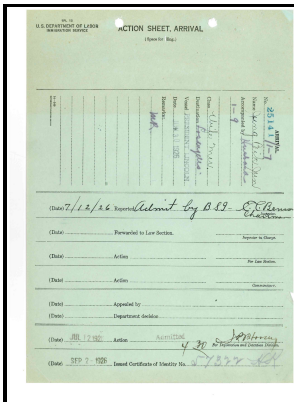 U. S. DEPARTMENT OF LABOR
IMMIGRATION SERVICE
ACTION SHEET, ARRIVAL
ARRIVAL
No. 25141/1-7
Name
Accompanied by Husband
1-9
Class
Destination Los Angeles
Vessel PRESIDENT LINCOLN
Date
Remarks:
(Date) 7/12/26 Reported Admit by BSI-
Chairman
Inspector.
(Date) Forwarded to Law Section.
Inspector in Charge.
(Date) Action
For Law Section.
(Date) Action
Commissioner.
(Date) Appealed by
(Date) Department decision
(Date) JUL 12 1926 Action Admitted
4 30
For Deportation and Detention Division.
(Date) SEP 2-1926 Issued Certificate of Identity No. 57322